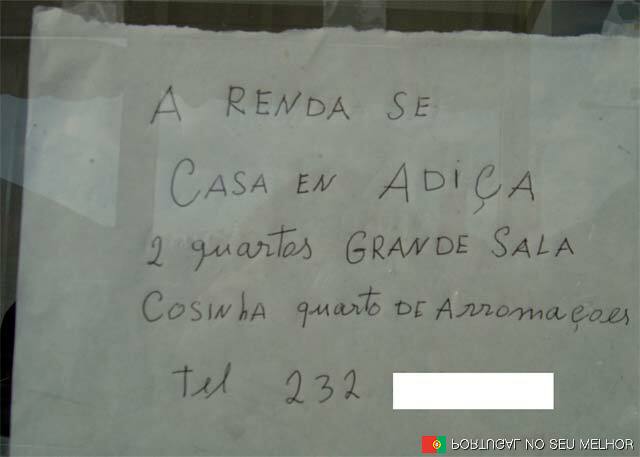 A RENDA SE
CASA EN ADIÇA
2 quartos GRANDE SALA
COSINhA quarto DE Arromaçoes
tel 232
PORTUGAL NO SEU MELHOR